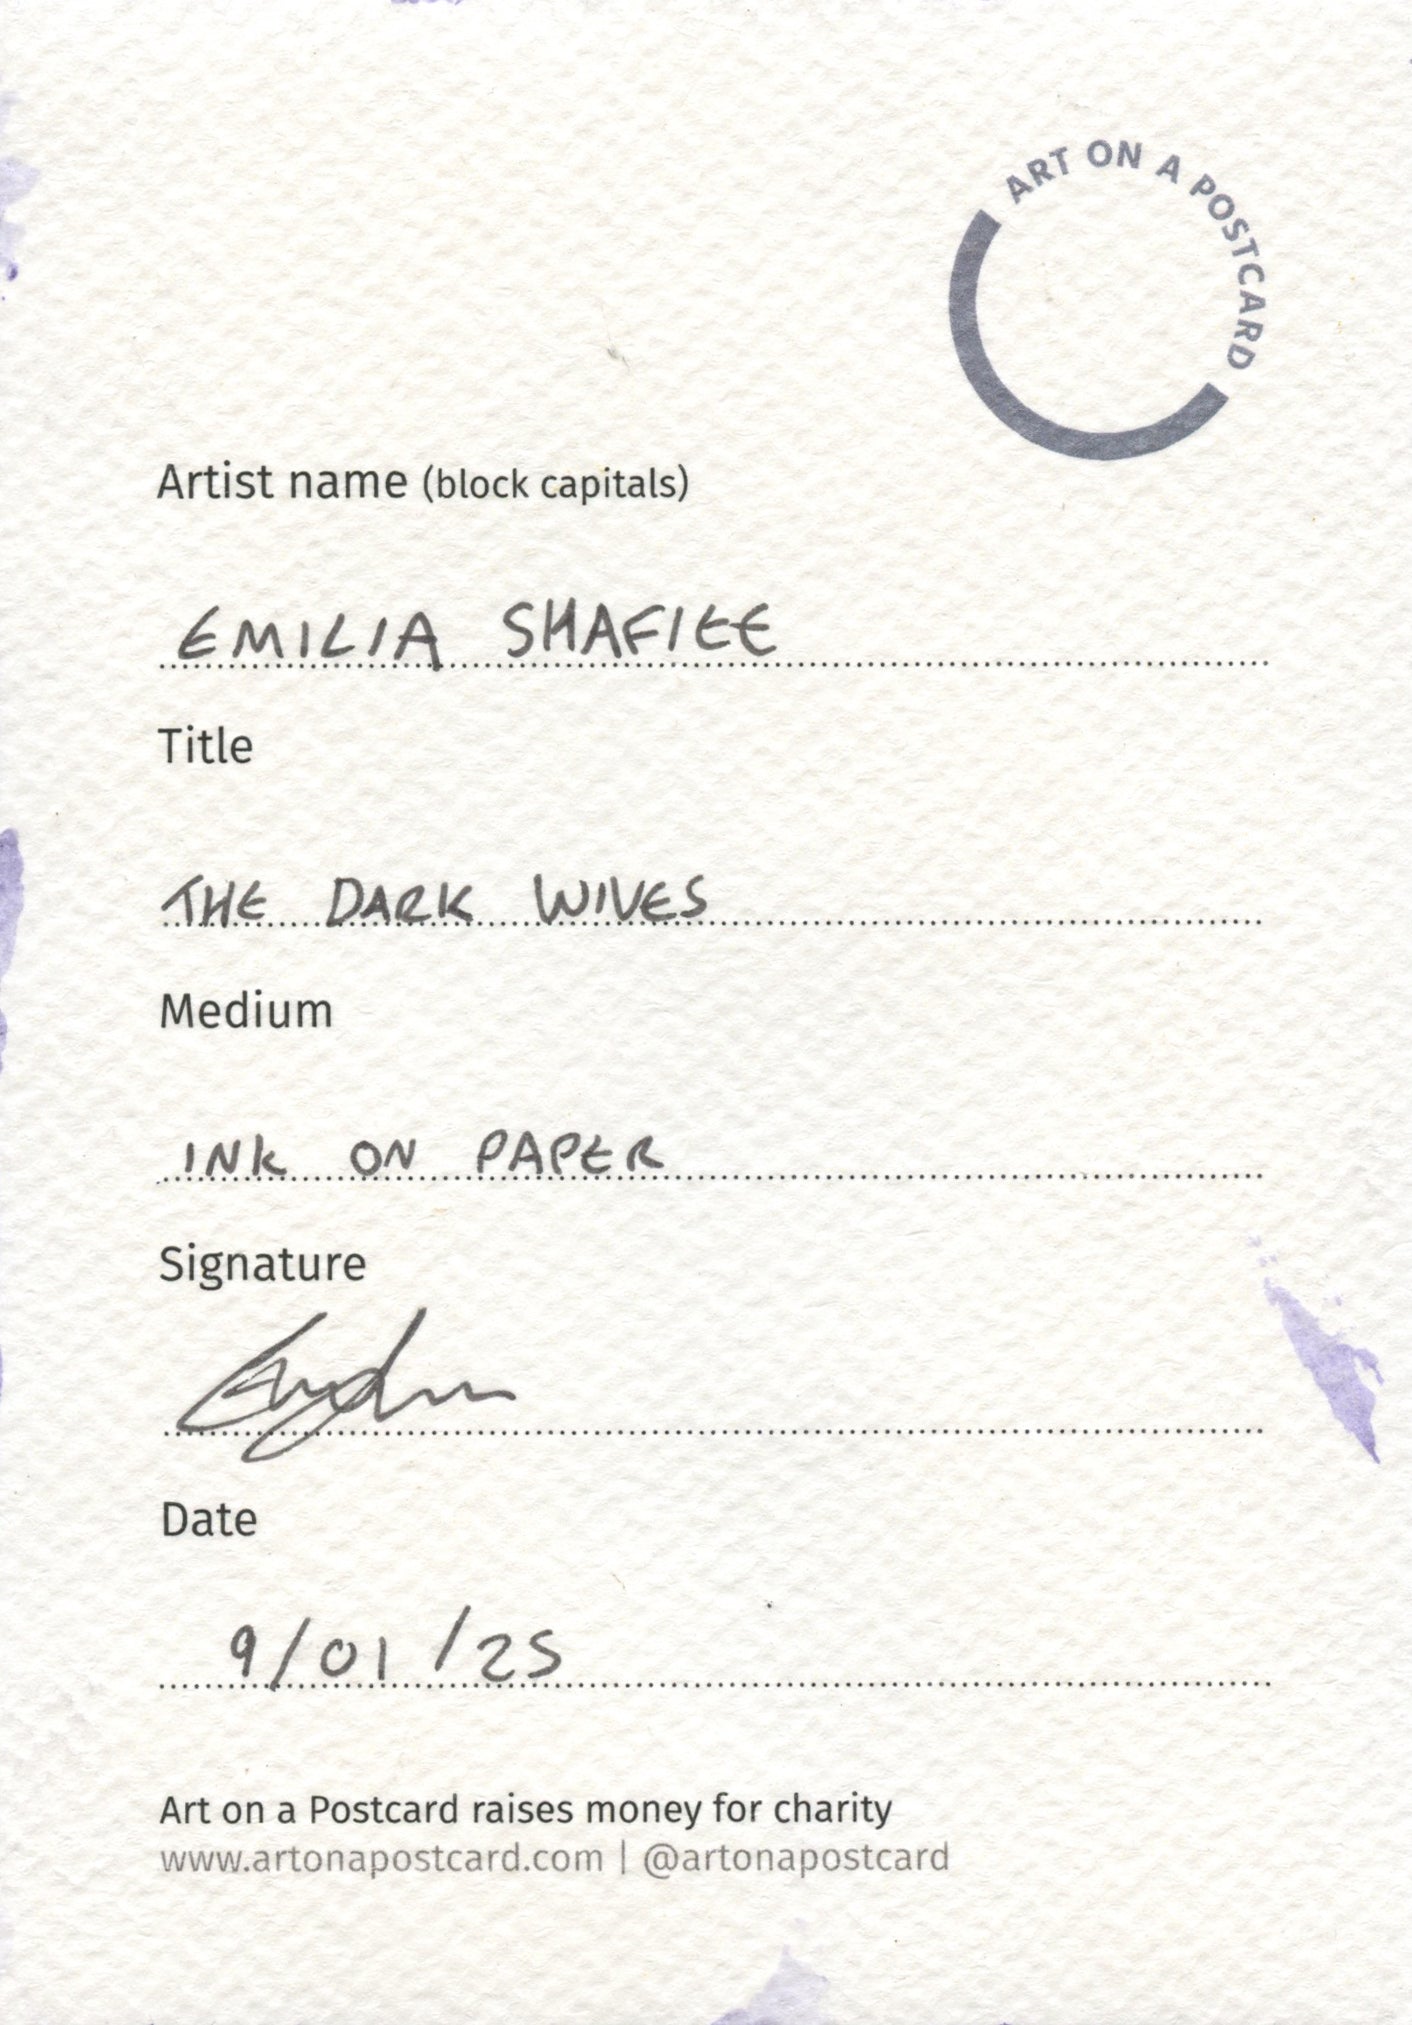 ART ON A POSTCARD
Artist name (block capitals)
EMILIA SHAFIEE
Title
THE DARK WIVES
Medium
INK ON PAPER
Signature
Date
9/01/25
Art on a Postcard raises money for charity
www.artonapostcard.com | @artonapostcard